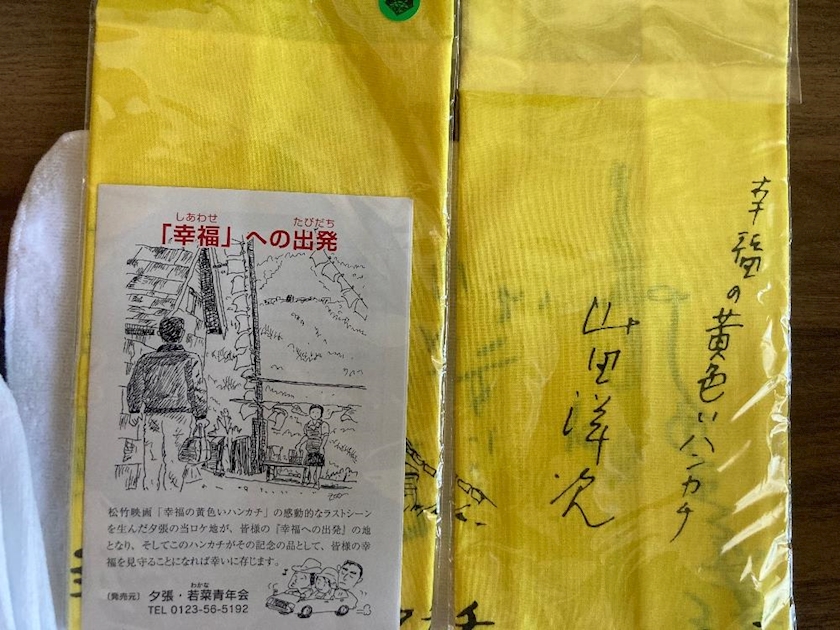 しあわせ　たびだち
「幸福」への出発
松竹映画「幸福の黄色いハンカチ」の感動的なラストシーン
を生んだ夕張の当ロケ地が、皆様の『幸福への出発』の地
となり、そしてこのハンカチがその記念の品として、皆様の幸
福を見守ることになれば幸いに存じます。
わかな
〔発売元〕 夕張・若菜青年会
TEL 0123-56-5192
幸福の黄色いハンカチ
山田洋次